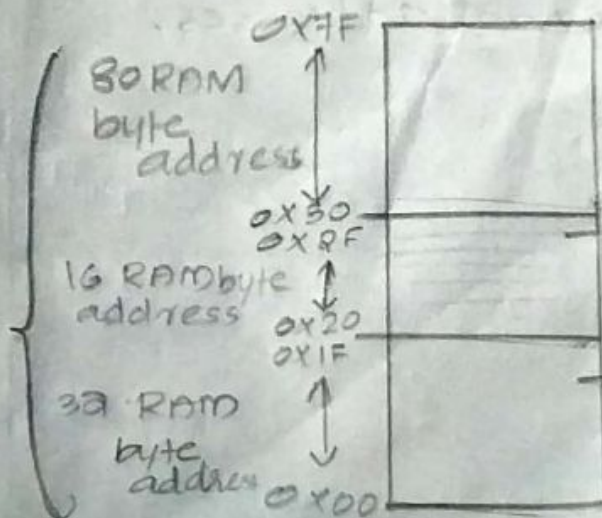 0X7F
80 RAM
byte
address
0X30
0X2F
16 RAM byte
address
0X20
0X1F
32 RAM
byte
address
0X00